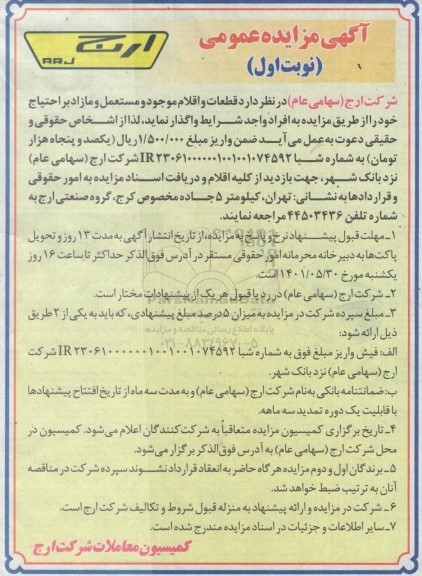 آگهی مزایده عمومی
(نوبت اول)
ارج
ARJ
شرکت ارج (سهامی عام) در نظر دارد قطعات و اقلام موجود و مستعمل و مازاد بر احتیاج
خود را از طریق مزایده به افراد واجد شرایط واگذار نماید، لذا از اشخاص حقوقی و
حقیقی دعوت به عمل می آید ضمن واریز مبلغ ۱/۵۰۰/۰۰۰ ریال (یکصد و پنجاه هزار
تومان) به شماره شبا IR ۲۳۰۶۱۰۰۰۰۰۰۱۰۰۱۰۰۱۰۷۴۵۹۲ شرکت ارج (سهامی عام)
نزد بانک شهر، جهت بازدید از کلیه اقلام و دریافت اسناد مزایده به امور حقوقی
و قراردادها به نشانی: تهران، کیلومتر ۵ جاده مخصوص کرج، گروه صنعتی ارج به
شماره تلفن ۴۴۵۰۳۴۳۶ مراجعه نمایند.
۱ـ مهلت قبول پیشنهاد نرخ و پاسخ به مزایده، از تاریخ انتشار آگهی به مدت ۱۳ روز و تحویل
پاکت‌ها به دبیرخانه محرمانه امور حقوقی مستقر در آدرس فوق الذکر حداکثر تا ساعت ۱۶ روز
یکشنبه مورخ ۱۴۰۱/۰۵/۳۰ است.
۲ـ شرکت ارج (سهامی عام) در رد یا قبول هر یک از پیشنهادات مختار است.
۳ـ مبلغ سپرده شرکت در مزایده به میزان ۵ درصد مبلغ پیشنهادی، که باید به یکی از ۲ طریق
ذیل ارائه شود:
پایگاه اطلاع رسانی مناقصه و مزایده
۰۲۱-۸۸۳۴۹۶۷۰-۵
الف: فیش واریز مبلغ فوق به شماره شبا IR ۲۳۰۶۱۰۰۰۰۰۰۱۰۰۱۰۰۱۰۷۴۵۹۲ شرکت
ارج (سهامی عام) نزد بانک شهر.
ب: ضمانتنامه بانکی به نام شرکت ارج (سهامی عام) و به مدت سه ماه از تاریخ افتتاح پیشنهادها
با قابلیت یک دوره تمدید سه ماهه.
۴ـ تاریخ برگزاری کمیسیون مزایده متعاقباً به شرکت کنندگان اعلام می‌شود. کمیسیون در
محل شرکت ارج (سهامی عام) به آدرس فوق الذکر برگزار می‌شود.
۵ـ برندگان اول و دوم مزایده هرگاه حاضر به انعقاد قرارداد نشوند سپرده شرکت در مناقصه
آنان به ترتیب ضبط خواهد شد.
۶ـ شرکت در مزایده و ارائه پیشنهاد به منزله قبول شروط و تکالیف شرکت ارج است.
۷ـ سایر اطلاعات و جزئیات در اسناد مزایده مندرج شده است.
کمیسیون معاملات شرکت ارج